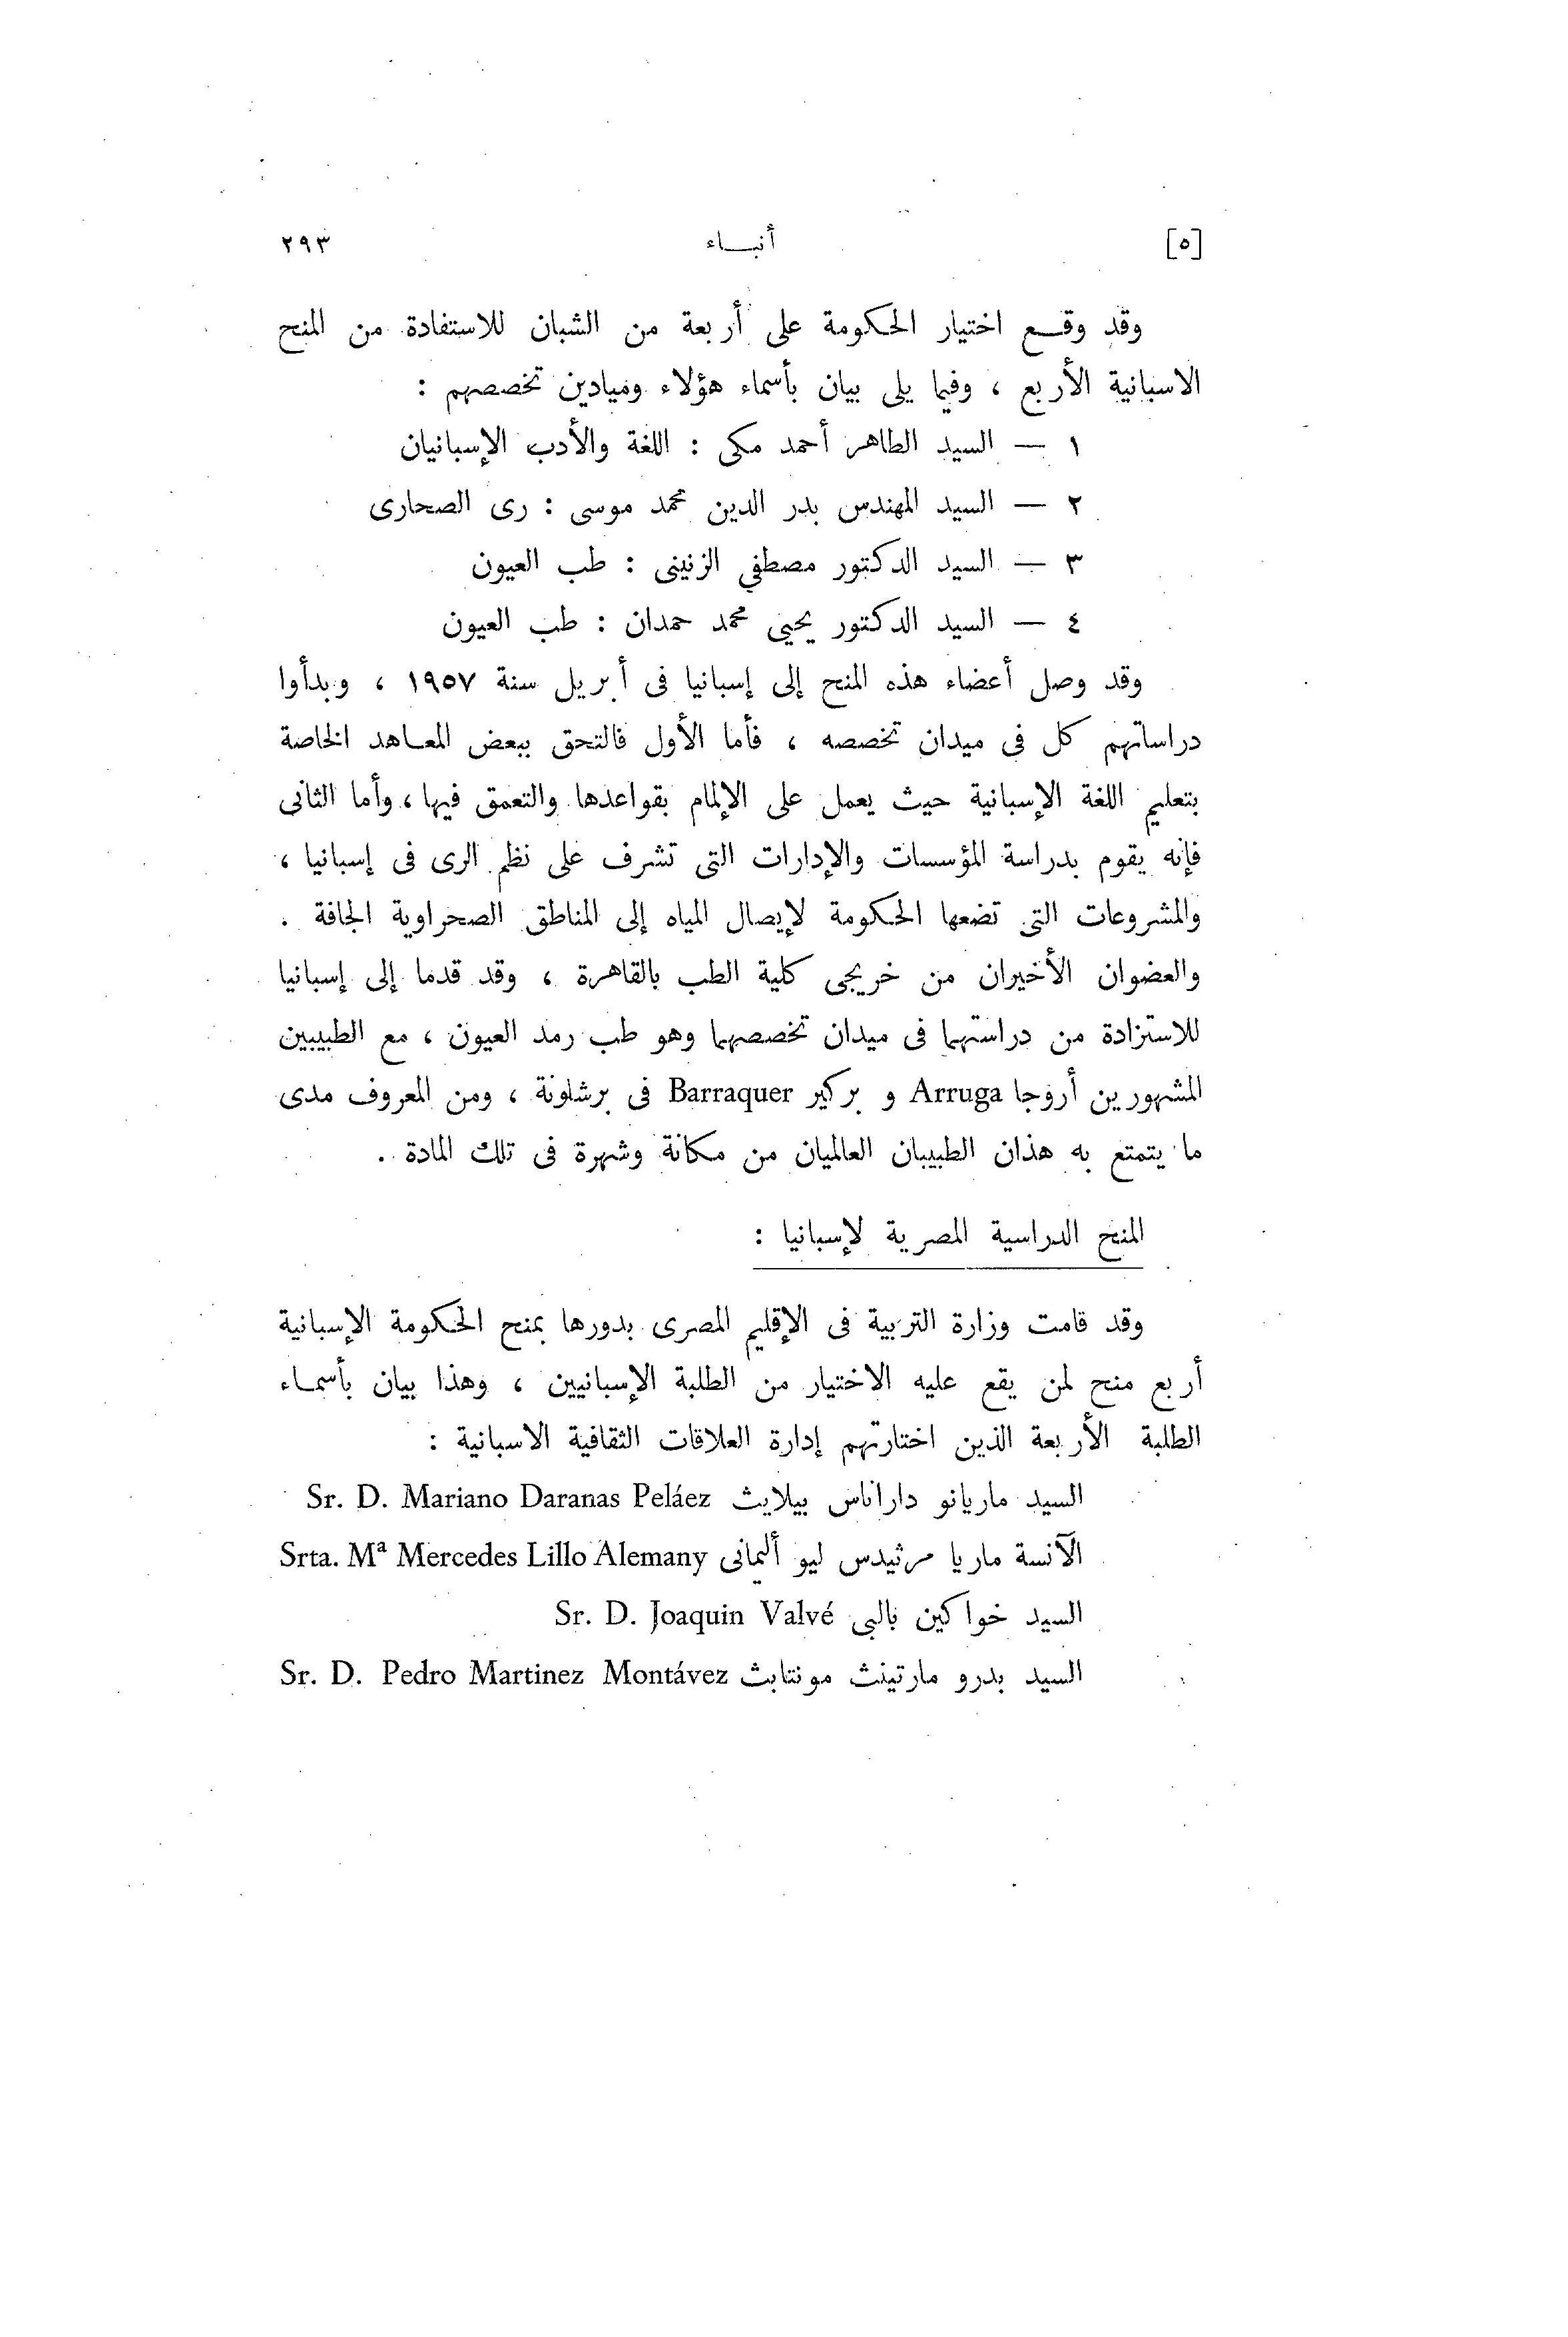 [٥] أنبـاء ٢٩٣
وقد وقـع اختيار الحكومة على أربعة من الشبان للاستفادة من المنح
الاسبانية الأربع ، وفيما يلى بيان بأسماء هؤلاء وميادين تخصصهم :
١ — السيد الطاهر أحمد مكى : اللغة والأدب الإسبانيان
٢ — السيد المهندس بدر الدين محمد موسى : رى الصحارى
٣ — السيد الدكتور مصطفى الزنينى : طب العيون
٤ — السيد الدكتور يحيى محمد حمدان : طب العيون
وقد وصل أعضاء هذه المنح إلى إسبانيا فى أبريل سنة ١٩٥٧ ، وبدأوا
دراساتهم كل فى ميدان تخصصه ، فأما الأول فالتحق ببعض المعـاهد الخاصة
بتعليم اللغة الإسبانية حيث يعمل على الإلمام بقواعدها والتعمق فيها ، وأما الثانى
فإنه يقوم بدراسة المؤسسات والإدارات التى تشرف على نظم الرى فى إسبانيا ،
والمشروعات التى تضعها الحكومة لإيصال المياه إلى المناطق الصحراوية الجافة .
والعضوان الأخيران من خريجى كلية الطب بالقاهرة ، وقد قدما إلى إسبانيا
للاستزادة من دراستهما فى ميدان تخصصهما وهو طب رمد العيون ، مع الطبيبين
المشهورين أروجا Arruga و بركير Barraquer فى برشلونة ، ومن المعروف مدى
ما يتمتع به هذان الطبيبان العالميان من مكانة وشهرة فى تلك المادة .
المنح الدراسية المصرية لإسبانيا :
وقد قامت وزارة التربية فى الإقليم المصرى بدورها بمنح الحكومة الإسبانية
أربع منح لمن يقع عليه الاختيار من الطلبة الإسبانيين ، وهذا بيان بأسمـاء
الطلبة الأربعة الذين اختارتهم إدارة العلاقات الثقافية الاسبانية :
السيد ماريانو داراناس بيلايث Sr. D. Mariano Daranas Peláez
الآنسة ماريا مرثيدس ليو أليمانى Srta. Mª Mercedes Lillo Alemany
السيد خواكين بالبى Sr. D. Joaquin Valvé
السيد بدرو مارتينث مونتابث Sr. D. Pedro Martinez Montávez